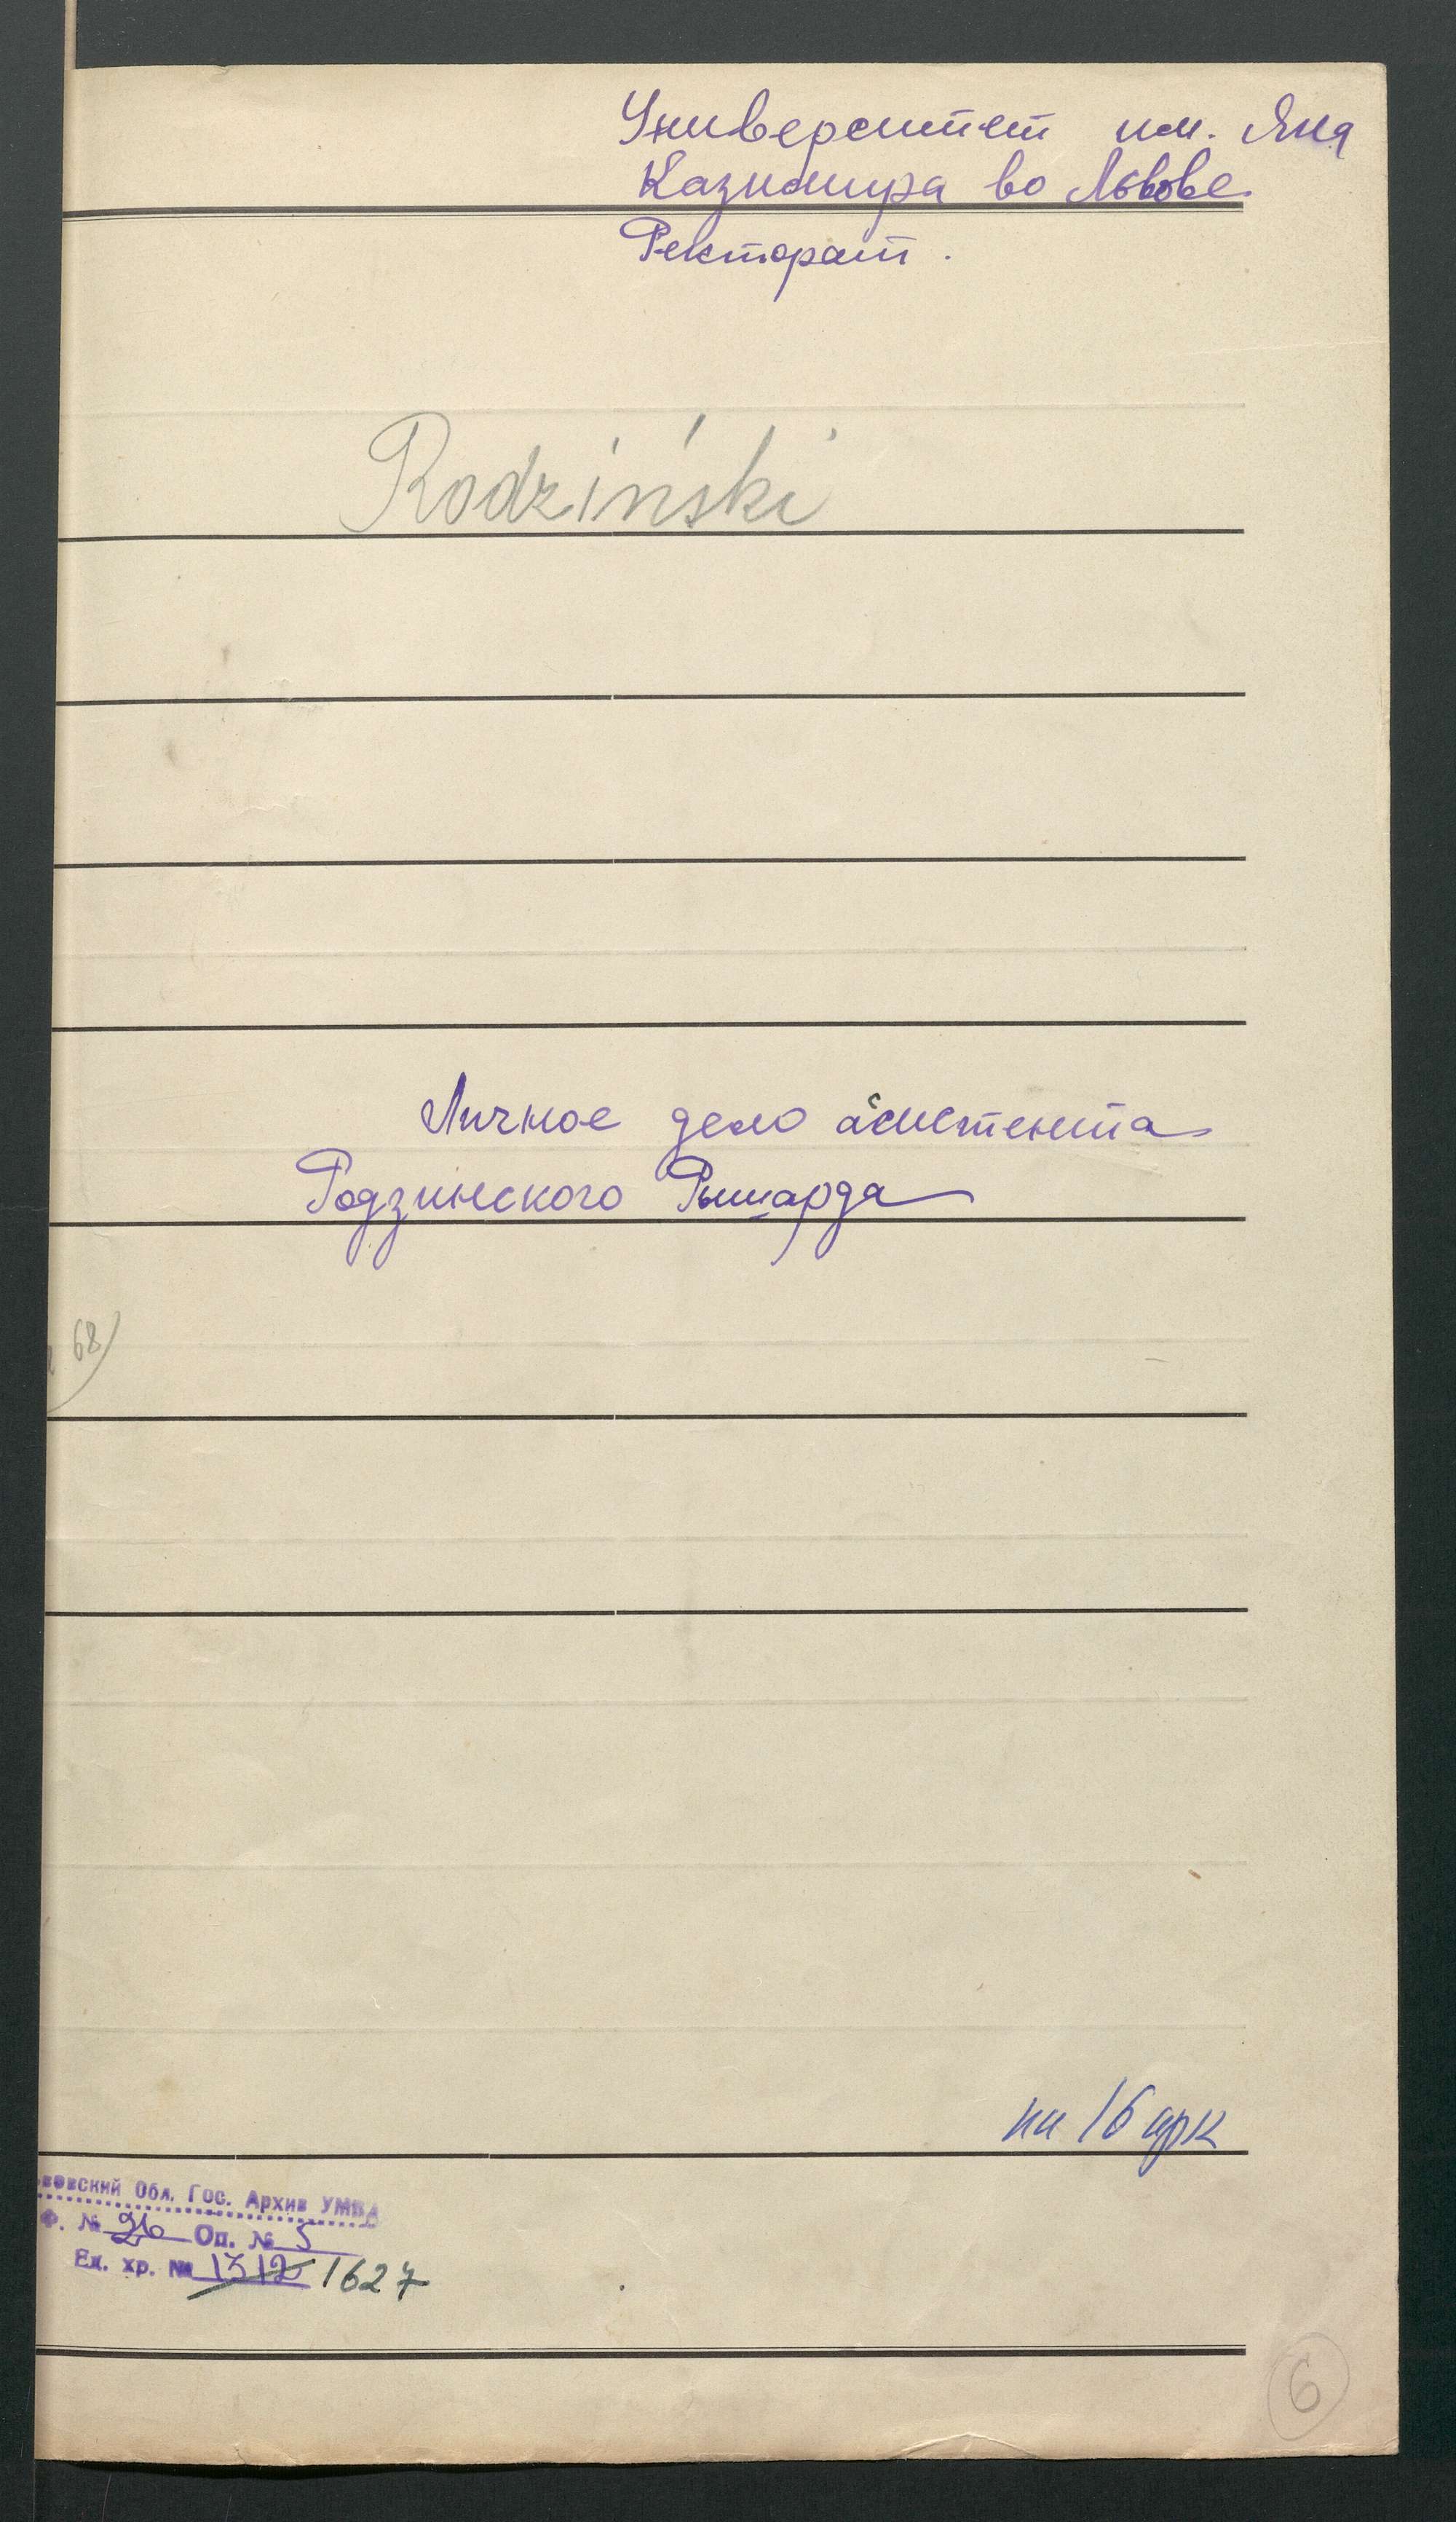 Университет им. Яна
Казимира во Львове
Ректорат.
Rodziński
Личное дело асистента
Родзинского Рышарда
68
на 16 арк
вовский Обл. Гос. Архив УМВД
Ф. № 26 Оп. № 5
Ед. хр. № 1312 1627
6